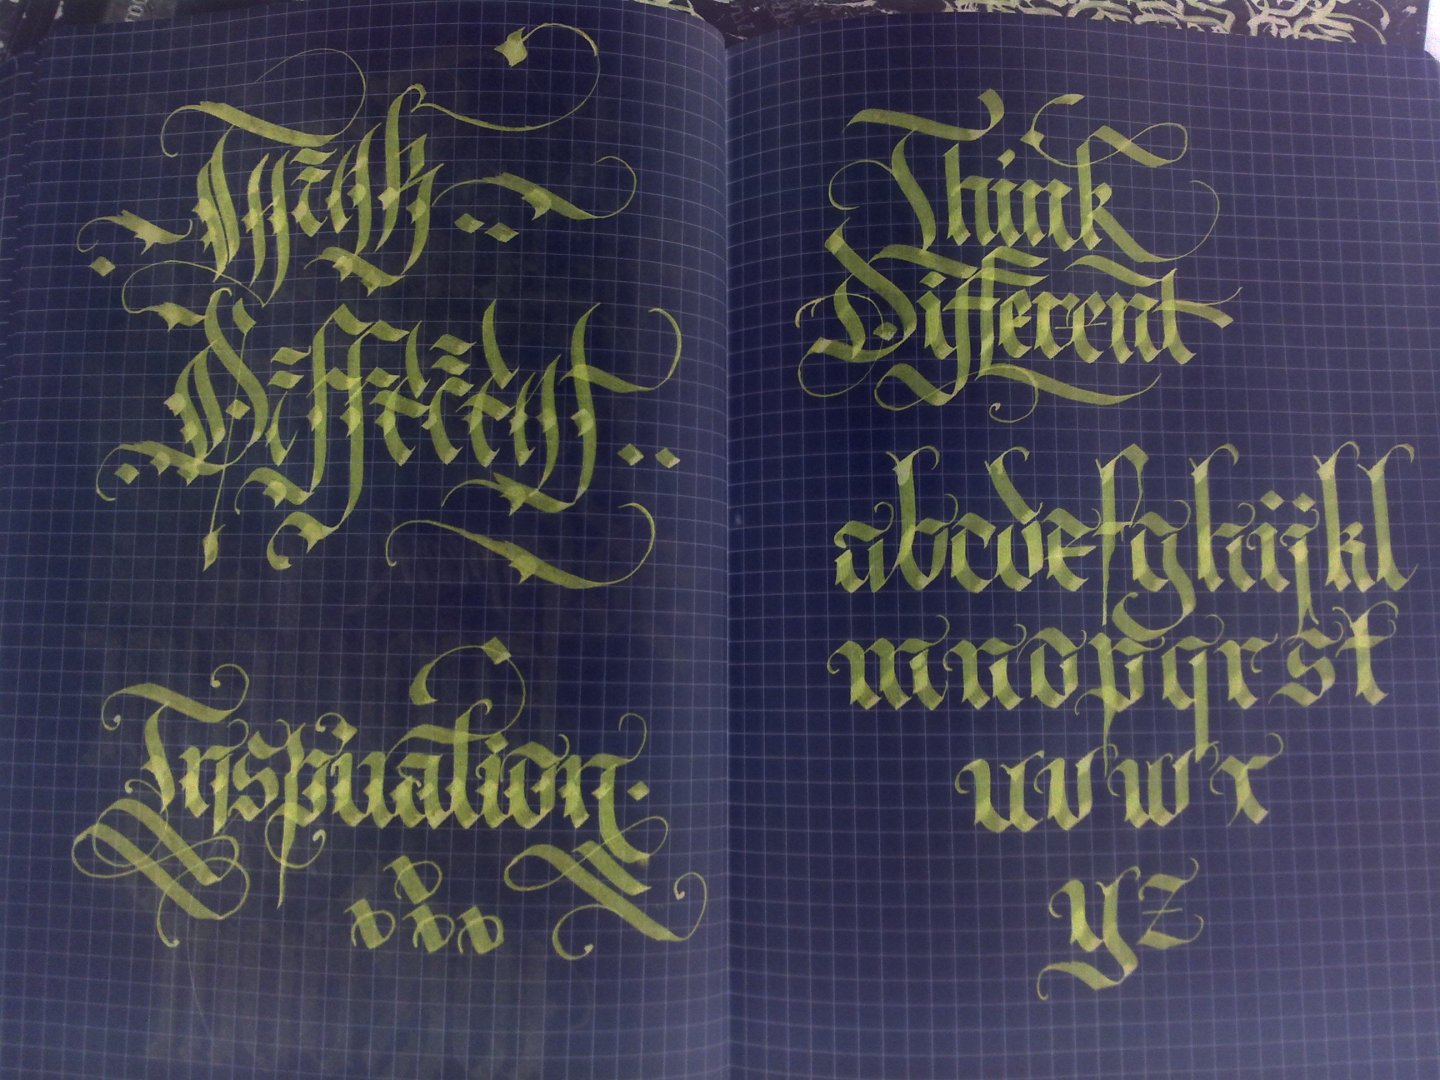 Think
Different
Inspiration
Think
Different
abcdefghijkl
mnopqrst
uvwx
yz